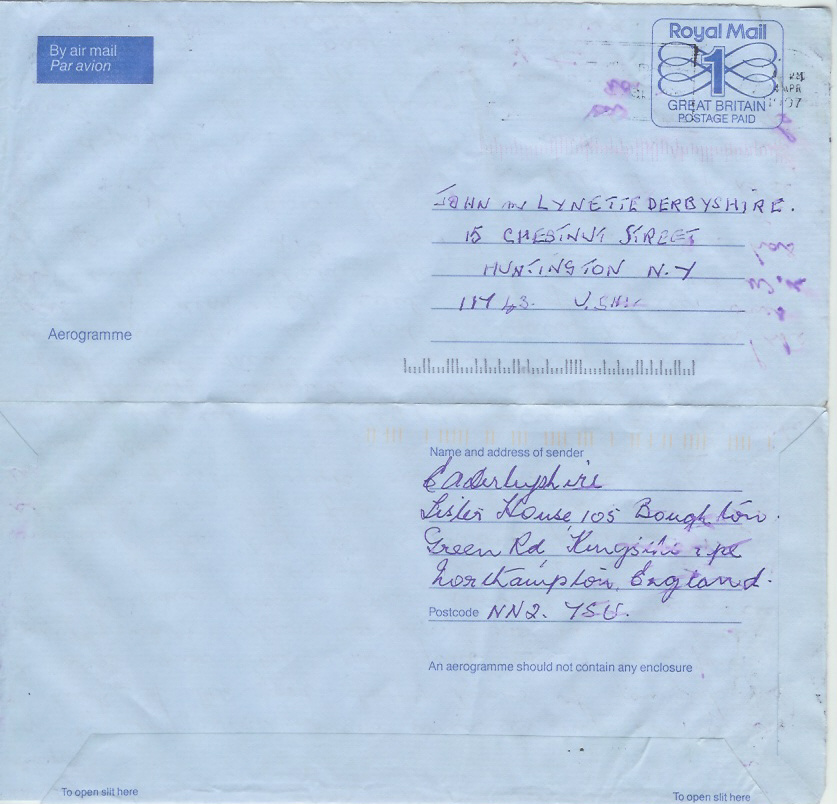 By air mail
Par avion
Royal Mail
1
GREAT BRITAIN
POSTAGE PAID
APR
JOHN LYNETTE DERBYSHIRE.
15 CHESTNUT STREET
HUNTINGTON N.Y
117 43.
Aerogramme
Name and address of sender
Lister House 105 Boughton
Green Rd
Northampton, England.
Postcode NN2. 7SU.
An aerogramme should not contain any enclosure
To open slit here
To open slit here